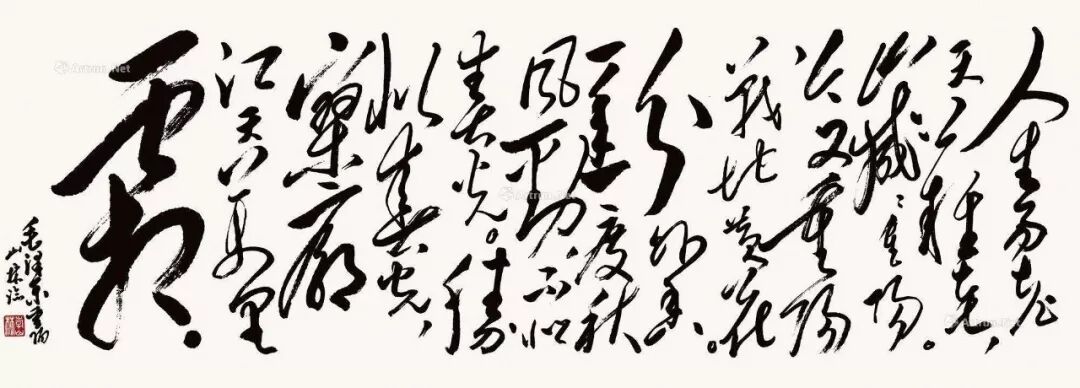 人生易老
天难老，
岁岁重阳。
今又重阳
战地黄花
分外香。
一年一度秋
风劲，不似
春光。胜
似春光，
寥廓
江天万里
霜。
毛泽东重阳
Artron.Net